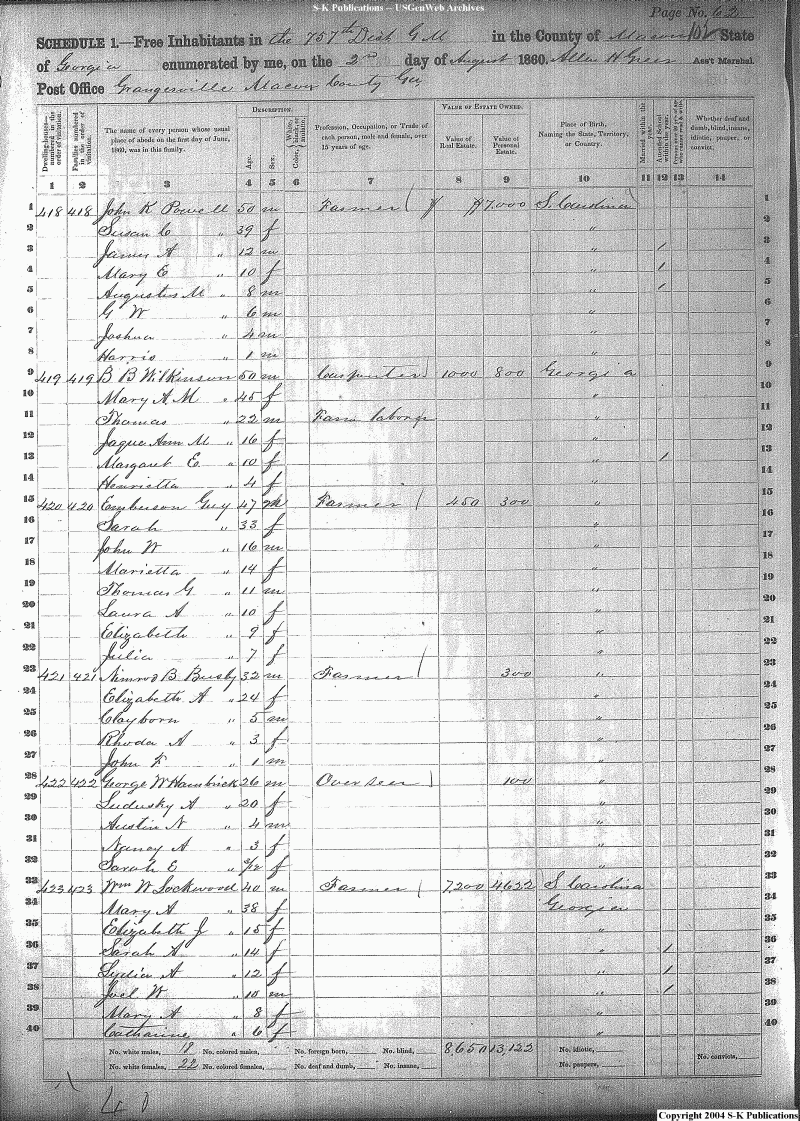 S-K Publications -- USGenWeb Archives
Page No. 62
SCHEDULE 1.—Free Inhabitants in the 757th Dist G M in the County of Macon State
of Georgia enumerated by me, on the 2nd day of August 1860. Allen H Greer Ass't Marshal.
Post Office Grangerville Macon County Geo
Dwelling-houses—numbered in the order of visitation.
Families numbered in the order of visitation.
The name of every person whose usual place of abode on the first day of June, 1860, was in this family.
DESCRIPTION.
Age.
Sex.
Color, White, black, or mulatto.
Profession, Occupation, or Trade of each person, male and female, over 15 years of age.
VALUE OF ESTATE OWNED.
Value of Real Estate.
Value of Personal Estate.
Place of Birth, Naming the State, Territory, or Country.
Married within the year.
Attended School within the year.
Whether deaf and dumb, blind, insane, idiotic, pauper, or convict.
1 2 3 4 5 6 7 8 9 10 11 12 13 14
1 418 418 John K Powell 50 m Farmer 7,000 S. Carolina 1
2 Susan C " 39 f " 2
3 James A " 12 m " / 3
4 Mary E " 10 f " / 4
5 Augustus M " 8 m " / 5
6 G W " 6 m " 6
7 Joshua " 4 m " 7
8 Harris " 1 m " 8
9 419 419 B B Wilkinson 50 m Carpenter 1000 800 Georgia 9
10 Mary A M " 45 f " 10
11 Thomas " 22 m Farm laborer " 11
12 Jaque Ann M " 16 f " 12
13 Margaret E. " 10 f " / 13
14 Henrietta " 4 f " 14
15 420 420 Emberson Guy 47 m Farmer 450 300 " 15
16 Sarah " 33 f " 16
17 John W " 16 m " 17
18 Marietta " 14 f " 18
19 Thomas G " 11 m " 19
20 Laura A " 10 f " 20
21 Elizabeth " 9 f " 21
22 Julia " 7 f " 22
23 421 421 Nimrod B Busby 32 m Farmer 300 " 23
24 Elizabeth A " 24 f " 24
25 Clayborn " 5 m " 25
26 Rhoda A " 3 f " 26
27 John F " 1 m " 27
28 422 422 George W Hambrick 26 m Overseer 100 " 28
29 Ludusky A " 20 f " 29
30 Austin N " 4 m " 30
31 Nancy A " 3 f " 31
32 Sarah E " f " 32
33 423 423 Wm W Lockwood 40 m Farmer 7,200 4622 S Carolina 33
34 Mary A " 38 f Georgia 34
35 Elizabeth J " 15 f " 35
36 Sarah A " 14 f " / 36
37 Lydia A " 12 f " / 37
38 Joel W " 10 m " / 38
39 Mary A " 8 f " 39
40 Catharine " 6 f " 40
No. white males, 18 No. colored males, No. foreign born, No. blind, 8,650 13,122 No. idiotic, No. convicts,
No. white females, 22 No. colored females, No. deaf and dumb, No. insane, No. paupers,
40
Copyright 2004 S-K Publications